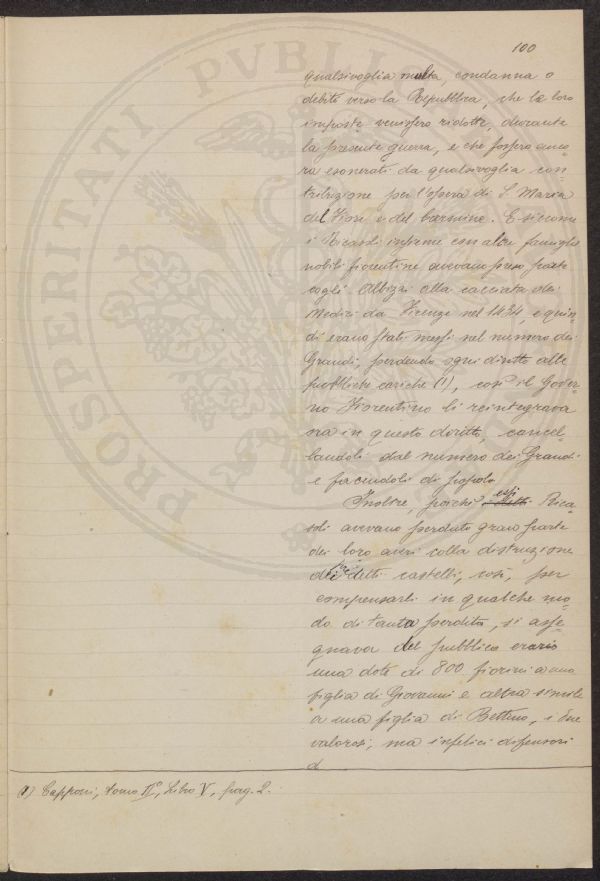 100
qualsivoglia multa, condanna o
debito verso la Repubblica, che le loro
imposte venissero ridotte, durante
la presente guerra, e che fossero anco-
ra esonerati da qualsivoglia con-
tribuzione per l'opera di S. Maria
del Fiore e del Carmine. E siccome
i Ricasoli insieme con altre famiglie
nobili fiorentine avevano preso parte
cogli Albizzi alla cacciata dei
Medici da Firenze nel 1434, e quin-
di erano stati messi nel numero dei
Grandi, perdendo ogni diritto alle
pubbliche cariche (1), così il Gover-
no Fiorentino li reintegrava
ora in questo diritto, cancel-
landoli dal numero dei Grandi
e facendoli di popolo.
Inoltre, poichè essi Rica-
soli avevano perduto gran parte
dei loro averi colla distruzione
dei detti castelli, così, per
compensarli in qualche mo-
do di tanta perdita, si asse-
gnava del pubblico erario
una dote di 800 fiorini a una
figlia di Giovanni e altra simile
a una figlia di Bettino, i due
valorosi, ma infelici difensori
d
(1) Capponi, tomo II°, Libro V, pag. 2.
PROSPERITATI PVBLIC